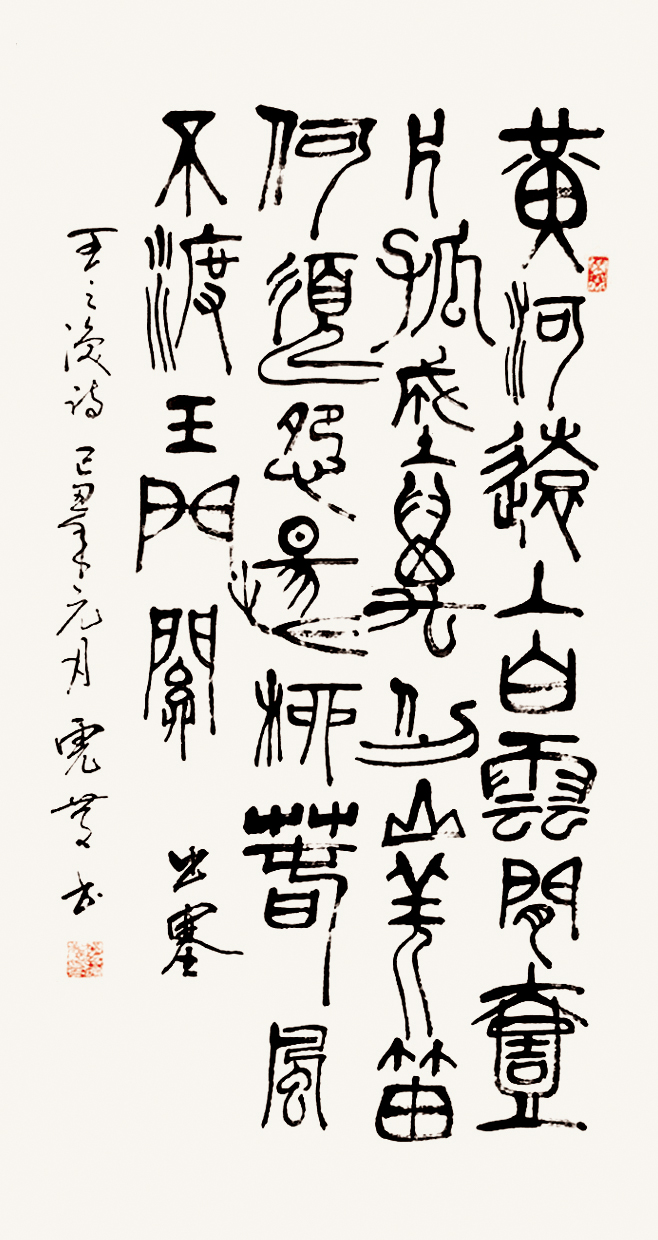 黃河遠上白雲間壹
片孤城萬仞山羌笛
何須怨楊柳萅風
不渡玉門關 出塞
王之涣诗 己丑年元月 书